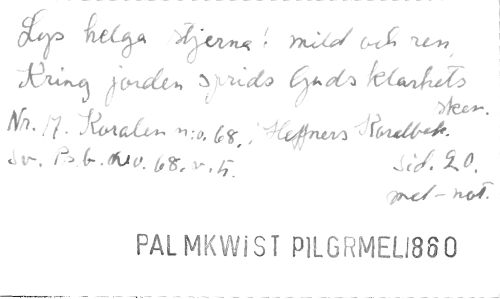 Lys helga stjerna! mild och ren,
Kring jorden sprids Guds klarhets
sken.
Nr. 17. Koralen n:o. 68, i Hæffners Koralbok.
Sv. Ps.b. No. 68. v. 5. sid. 20.
mel-not.
PALMKWiST PILGRMEL1860